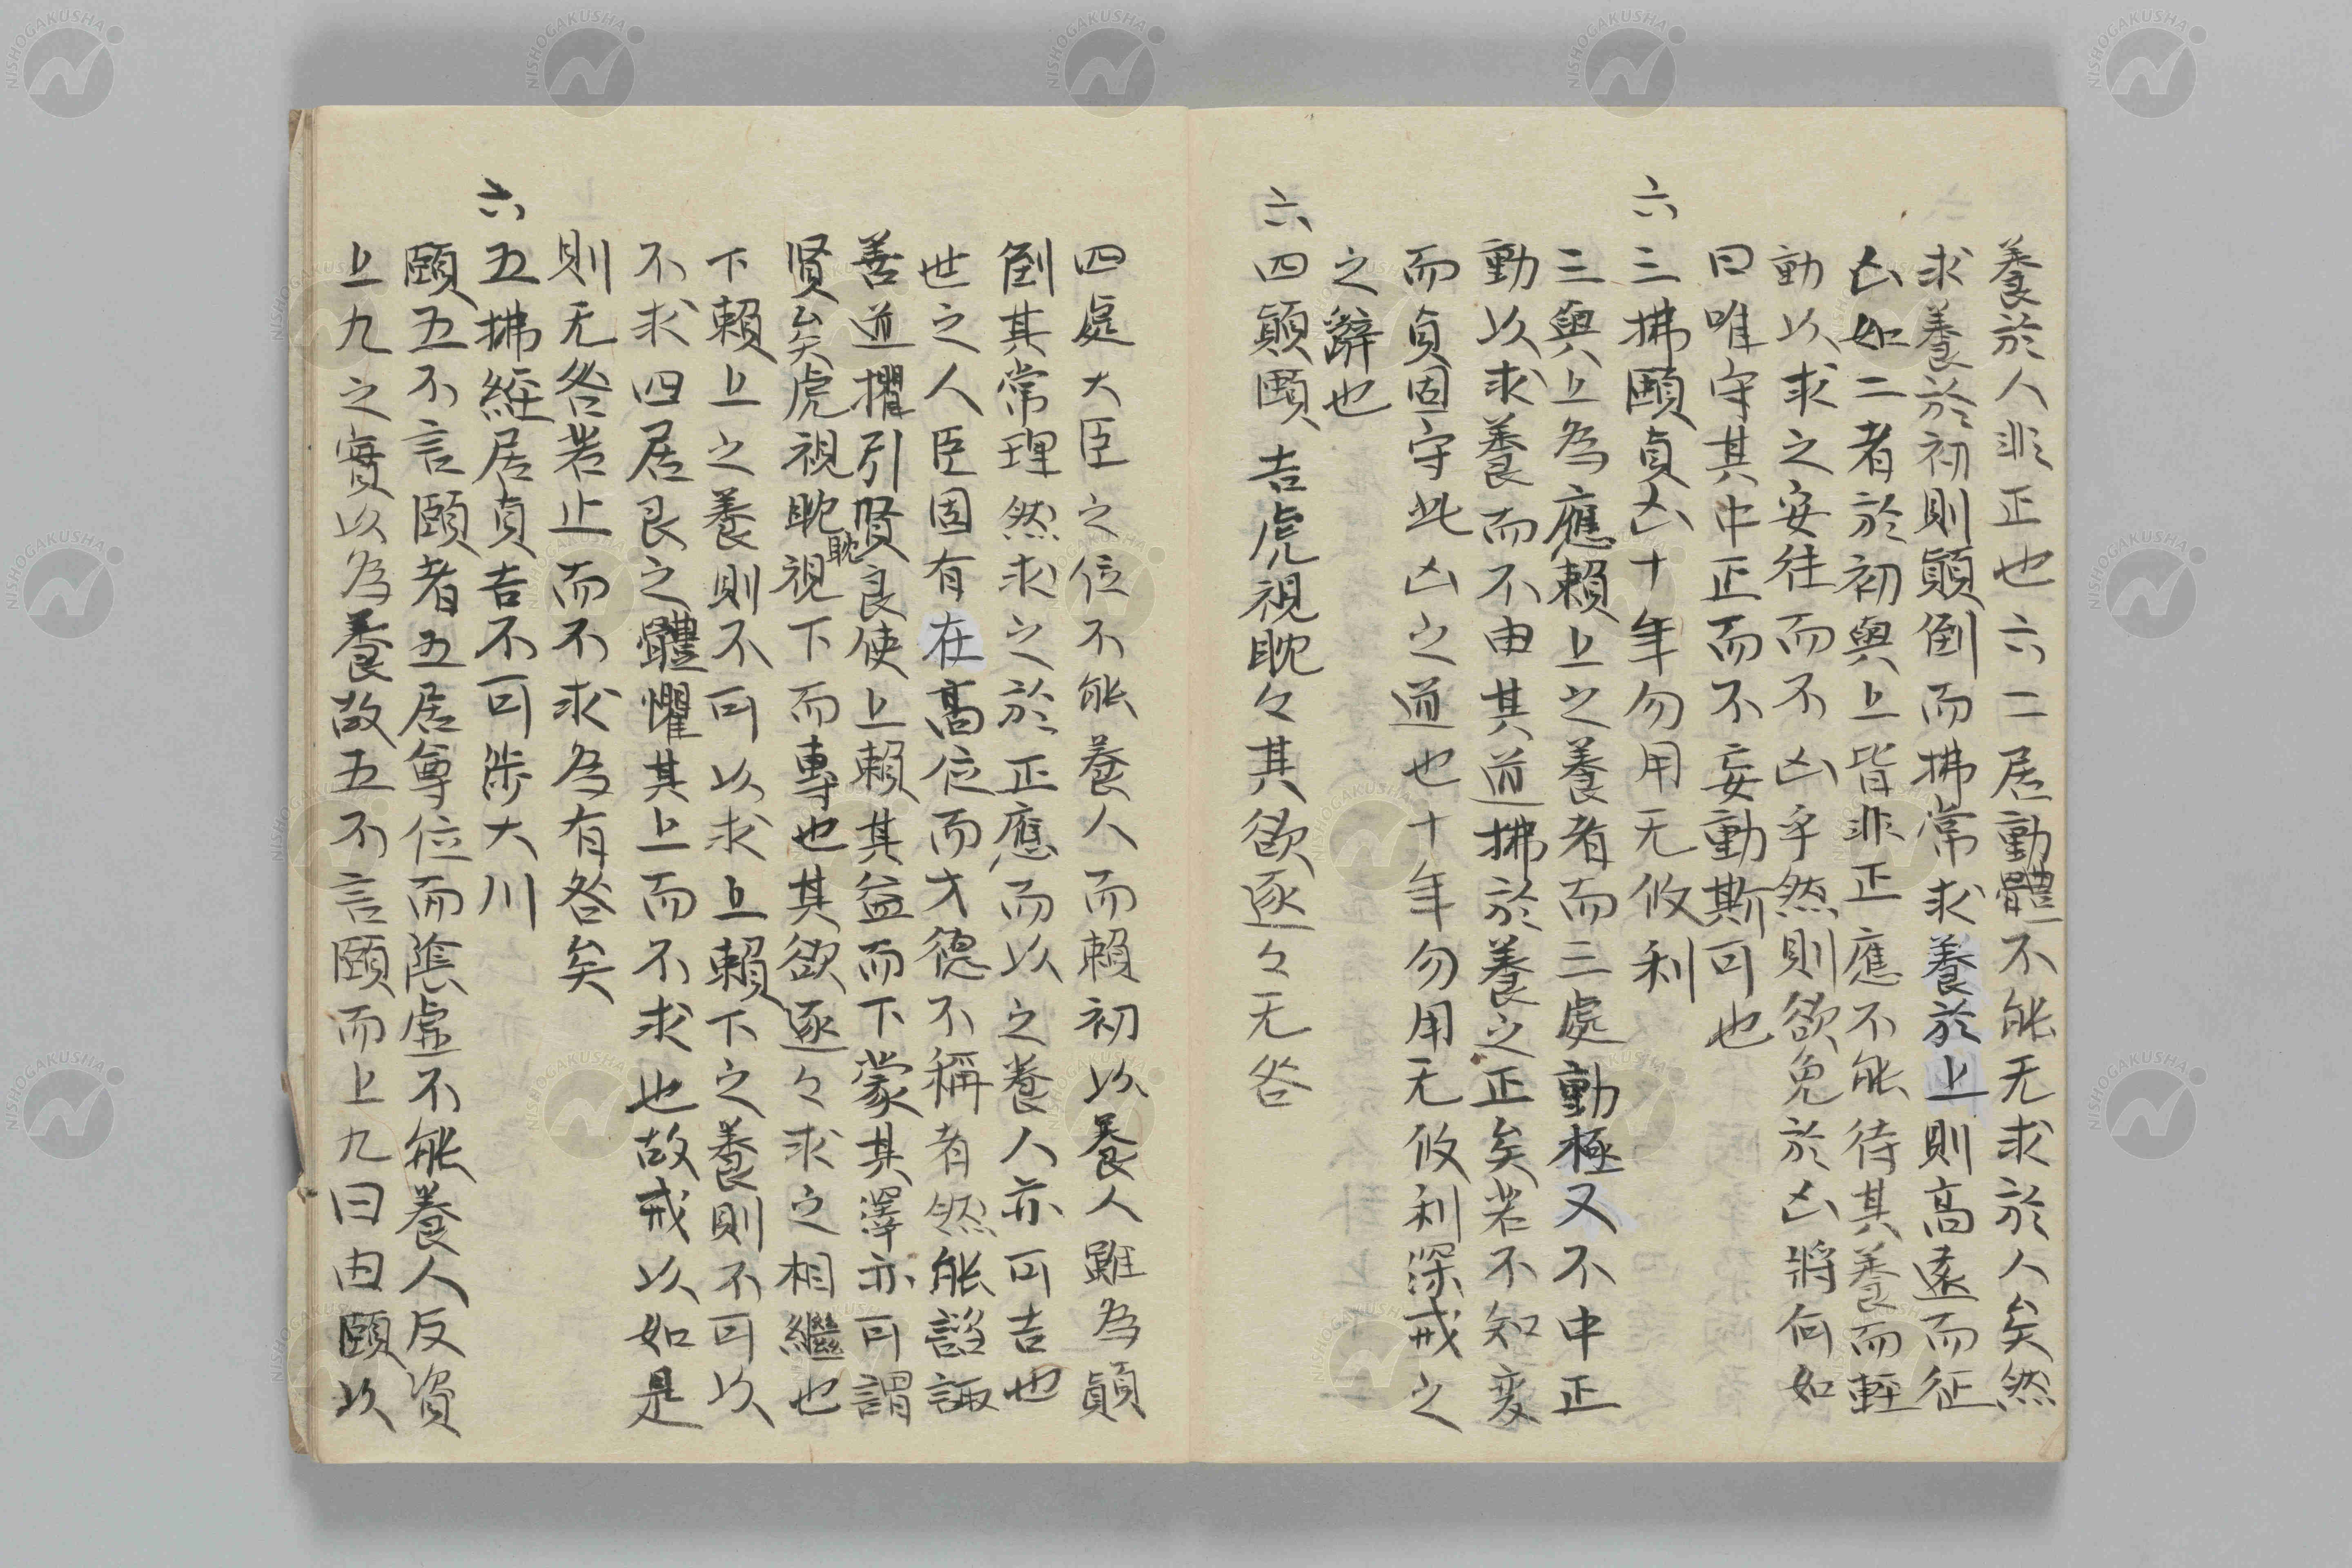 養於人非正也六二居動體不能无求於人矣然
求養於初則顚倒而拂常求養於上則高遠而征
凶如二者於初與上皆非正應不能待其養而輕
動以求之安往而不凶乎然則欲免於凶將何如
曰唯守其中正而不妄動斯可也
六三拂頤貞凶十年勿用无攸利
三與上為應賴上之養者而三處動極又不中正
動以求養而不由其道拂於養之正矣若不知変
而貞固守此凶之道也十年勿用无攸利深戒之
之辭也
六四顚頤吉虎視眈々其欲逐々无咎
四處大臣之位不能養人而賴初以養人雖為顚
倒其常理然求之於正應而以之養人亦可吉也
世之人臣固有在高位而才德不稱者然能諮諏
善道擢引賢良使上賴其益而下蒙其澤亦可謂
賢矣虎視眈眈視下而專也其欲逐々求之相繼也
下賴上之養則不可以求上賴下之養則不可以
不求四居艮之體懼其上而不求也故戒以如是
則无咎若止而不求為有咎矣
六五拂經居貞吉不可涉大川
頤五不言頤者五居尊位而陰虛不能養人反資
上九之實以為養故五不言頤而上九曰由頤以
NISHOGAKUSHA